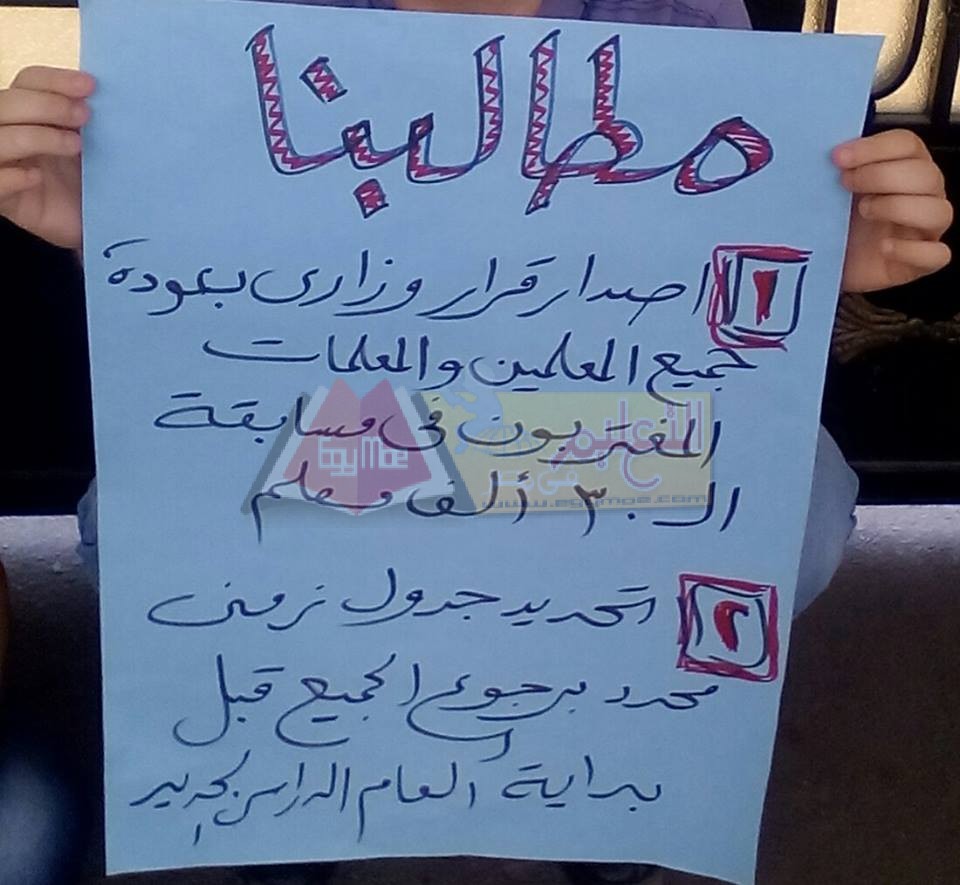 مطالبنا
١ اصدار قرار وزارى بعودة
جميع المعلمين والمعلمات
المغتربون فى مسابقة
الـ ٣٠ ألف معلم
٢ تحديد جدول زمنى
محدد برجوع الجميع قبل
بداية العام الدراسى الجديد
التعليم
فى مصر
EgyMoe
www.egymoe.com